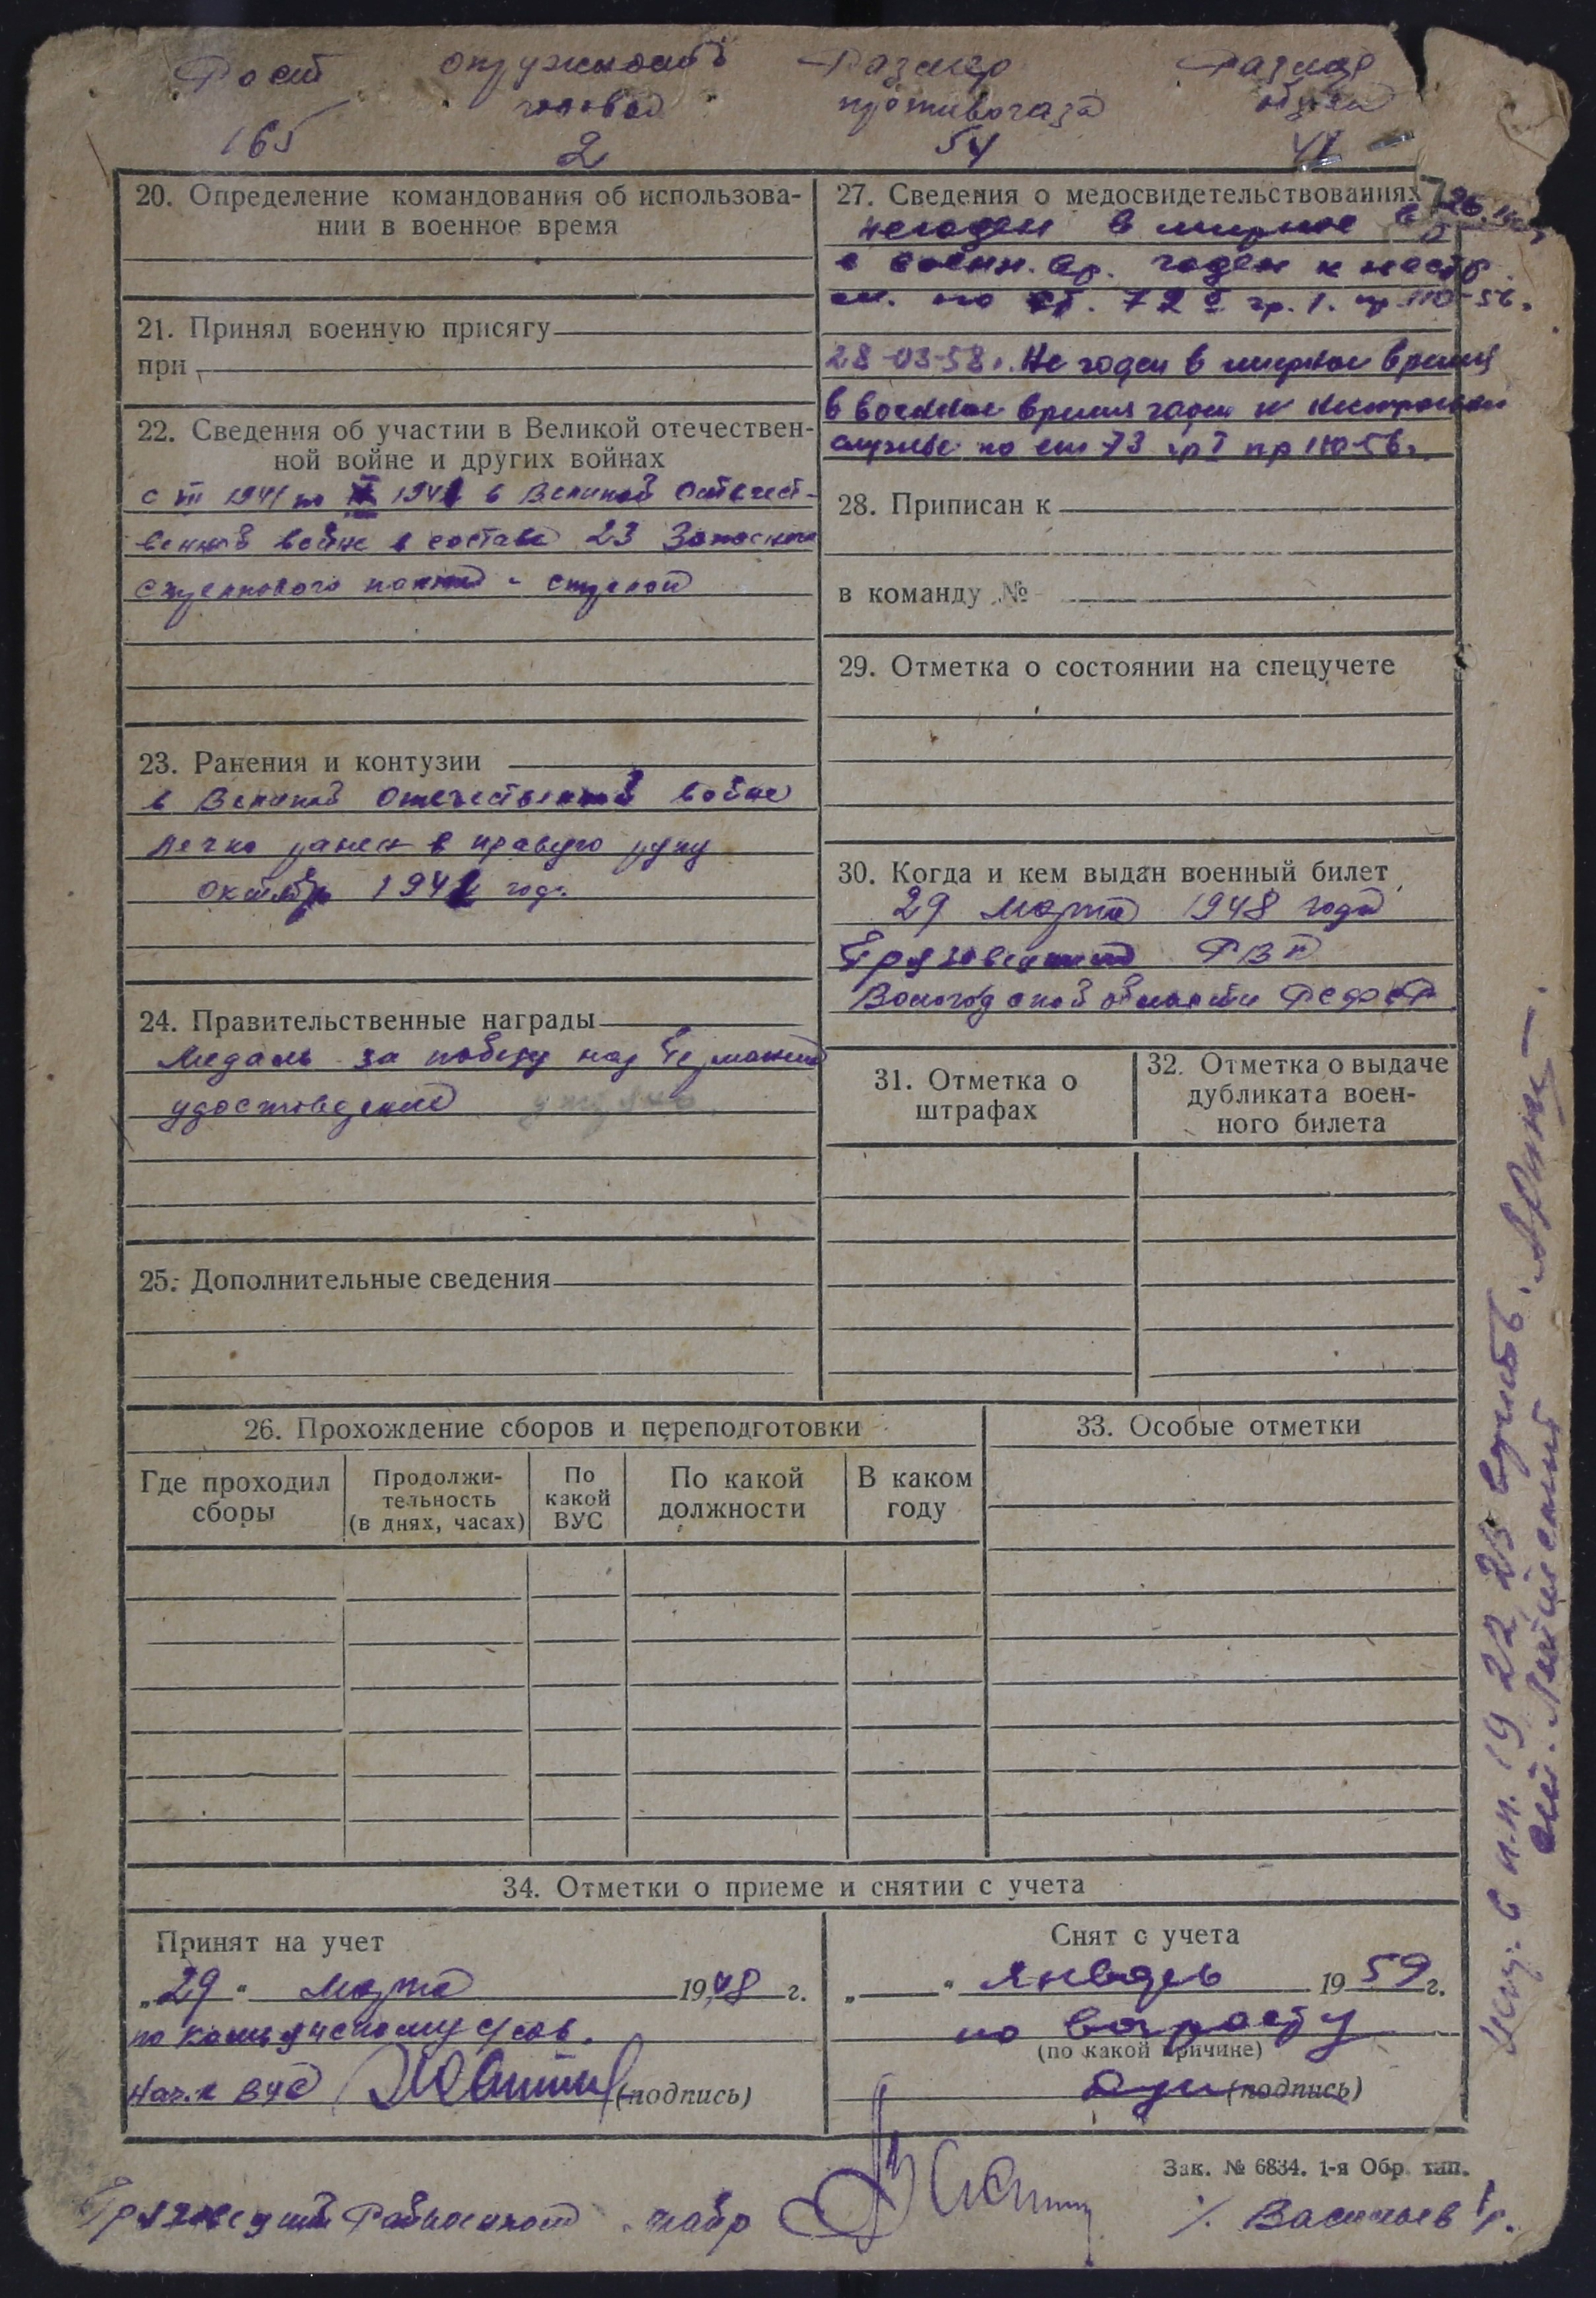 Рост окружность Размер Размер
головы противогаза обуви
165 2 54 41
20. Определение командования об использова-
нии в военное время
21. Принял военную присягу
при
22. Сведения об участии в Великой отечествен-
ной войне и других войнах
с III 1941 по 1941 в Великой Отечест-
венной войне в составе 23 Запасного
стрелкового полка - стрелок
23. Ранения и контузии
в Великой Отечественной войне
легко ранен в правую руку
октябрь 1941 год.
24. Правительственные награды
Медаль за победу над Германией
удостоверение утеряно
25. Дополнительные сведения
27. Сведения о медосвидетельствованиях
негоден в мирное
в военн. вр. годен к нестр.
сл. по ст. 72 гр. I. пр. 110-56.
28-03-58г. Не годен в мирное время
в военное время годен к нестроевой
службе по ст 73 гр I пр 110-56г.
28. Приписан к
в команду №
29. Отметка о состоянии на спецучете
30. Когда и кем выдан военный билет
29 Марта 1948 года
Грязовецким РВК
Вологодской области РСФСР
31. Отметка о
штрафах
32. Отметка о выдаче
дубликата воен-
ного билета
26. Прохождение сборов и переподготовки
Где проходил
сборы
Продолжи-
тельность
(в днях, часах)
По
какой
ВУС
По какой
должности
В каком
году
33. Особые отметки
34. Отметки о приеме и снятии с учета
Принят на учет
„29" Марта 1948 г.
по
Нач.к (подпись)
Снят с учета
„ " январь 1959 г.
по возрасту
(по какой причине)
(подпись)
Зак. № 6834. 1-я Обр. тип.
Грязовецкий
Васильев
испр. в п.п. 19 22 23 верить.